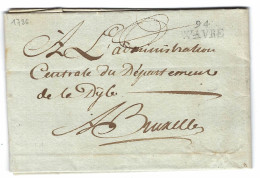 1798
94
WAVRE
A L'administration
Centrale du Département
de la Dyle.
A Bruxelles